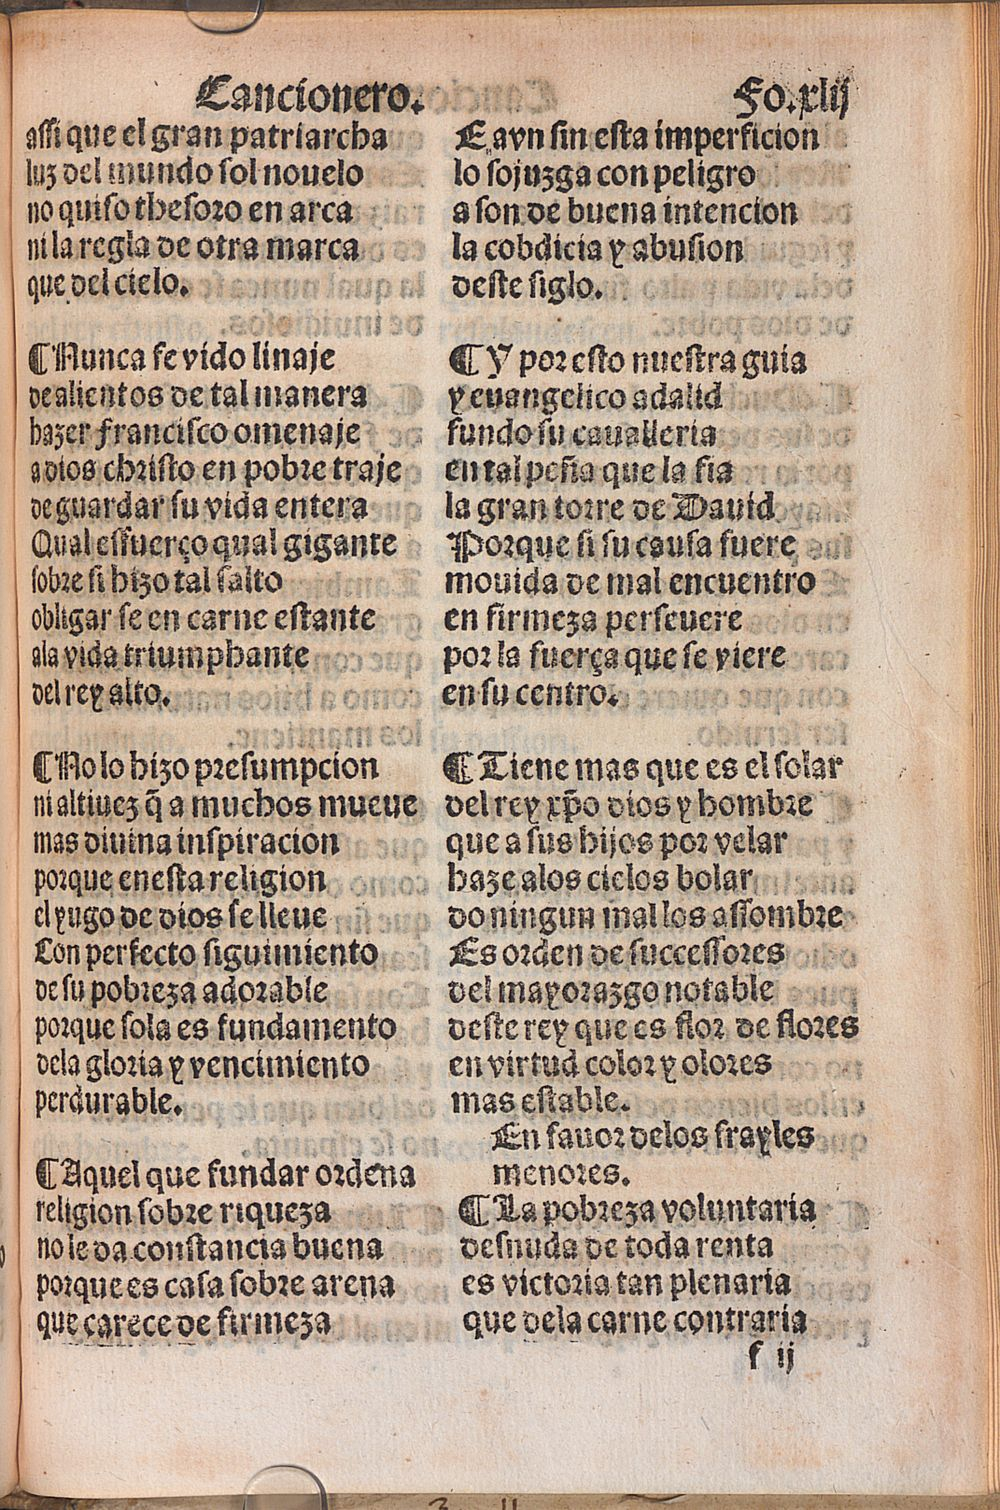 Cancionero.
Fo.xlij
assi que el gran patriarcha
luz del mundo sol nouelo
no quiso thesoro en arca
ni la regla de otra marca
que del cielo.
¶ Nunca se vido linaje
de alientos de tal manera
hazer francisco omenaje
a dios christo en pobre traje
de guardar su vida entera
Qual esfuerço qual gigante
sobre si hizo tal salto
obligar se en carne estante
ala vida triumphante
del rey alto.
¶ No lo hizo presumpcion
ni altiuez q̃ a muchos mueue
mas diuina inspiracion
porque enesta religion
el yugo de dios se lleue
Con perfecto siguimiento
de su pobreza adorable
porque sola es fundamento
dela gloria y vencimiento
perdurable.
¶ Aquel que fundar ordena
religion sobre riqueza
no le da constancia buena
porque es casa sobre arena
que carece de firmeza
E avn sin esta imperficion
lo sojuzga con peligro
a son de buena intencion
la cobdicia y abusion
deste siglo.
¶ Y por esto nuestra guia
y euangelico adalid
fundo su caualleria
en tal peña que la fia
la gran torre de Dauid
Porque si su causa fuere
mouida de mal encuentro
en firmeza perseuere
por la fuerça que se viere
en su centro.
¶ Tiene mas que es el solar
del rey xp̃o dios y hombre
que a sus hijos por velar
haze alos cielos bolar
do ningun mal los assombre
Es orden de successores
del mayorazgo notable
deste rey que es flor de flores
en virtud color y olores
mas estable.
En fauor delos frayles
menores.
¶ La pobreza voluntaria
desnuda de toda renta
es victoria tan plenaria
que dela carne contraria
f ij